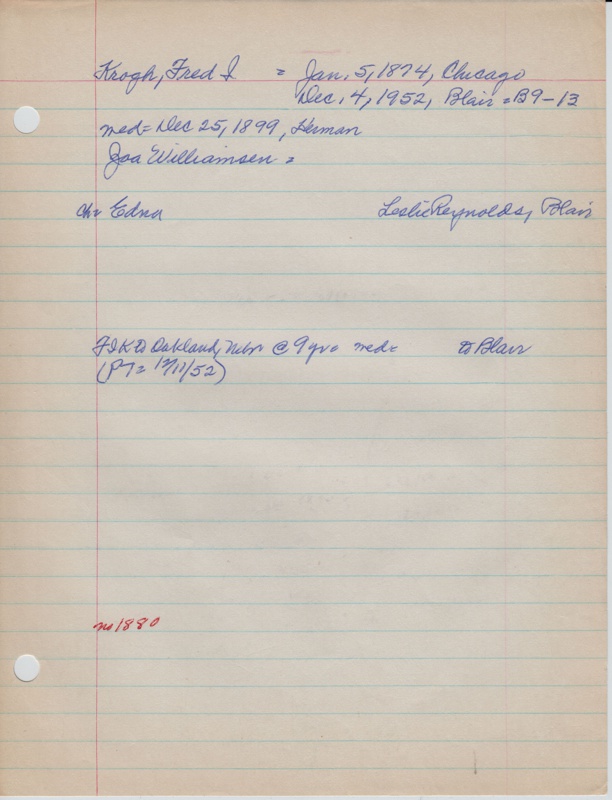 Krogh, Fred I = Jan. 5, 1874, Chicago
Dec. 4, 1952, Blair = B9-13
med = Dec 25, 1899, Herman
Joa Williamsen =
ch = Edna Leslie Reynolds, Blair
FIK to Oakland, Nebr @ 9 yrs med = to Blair
(PT = 12/11/52)
no 1880